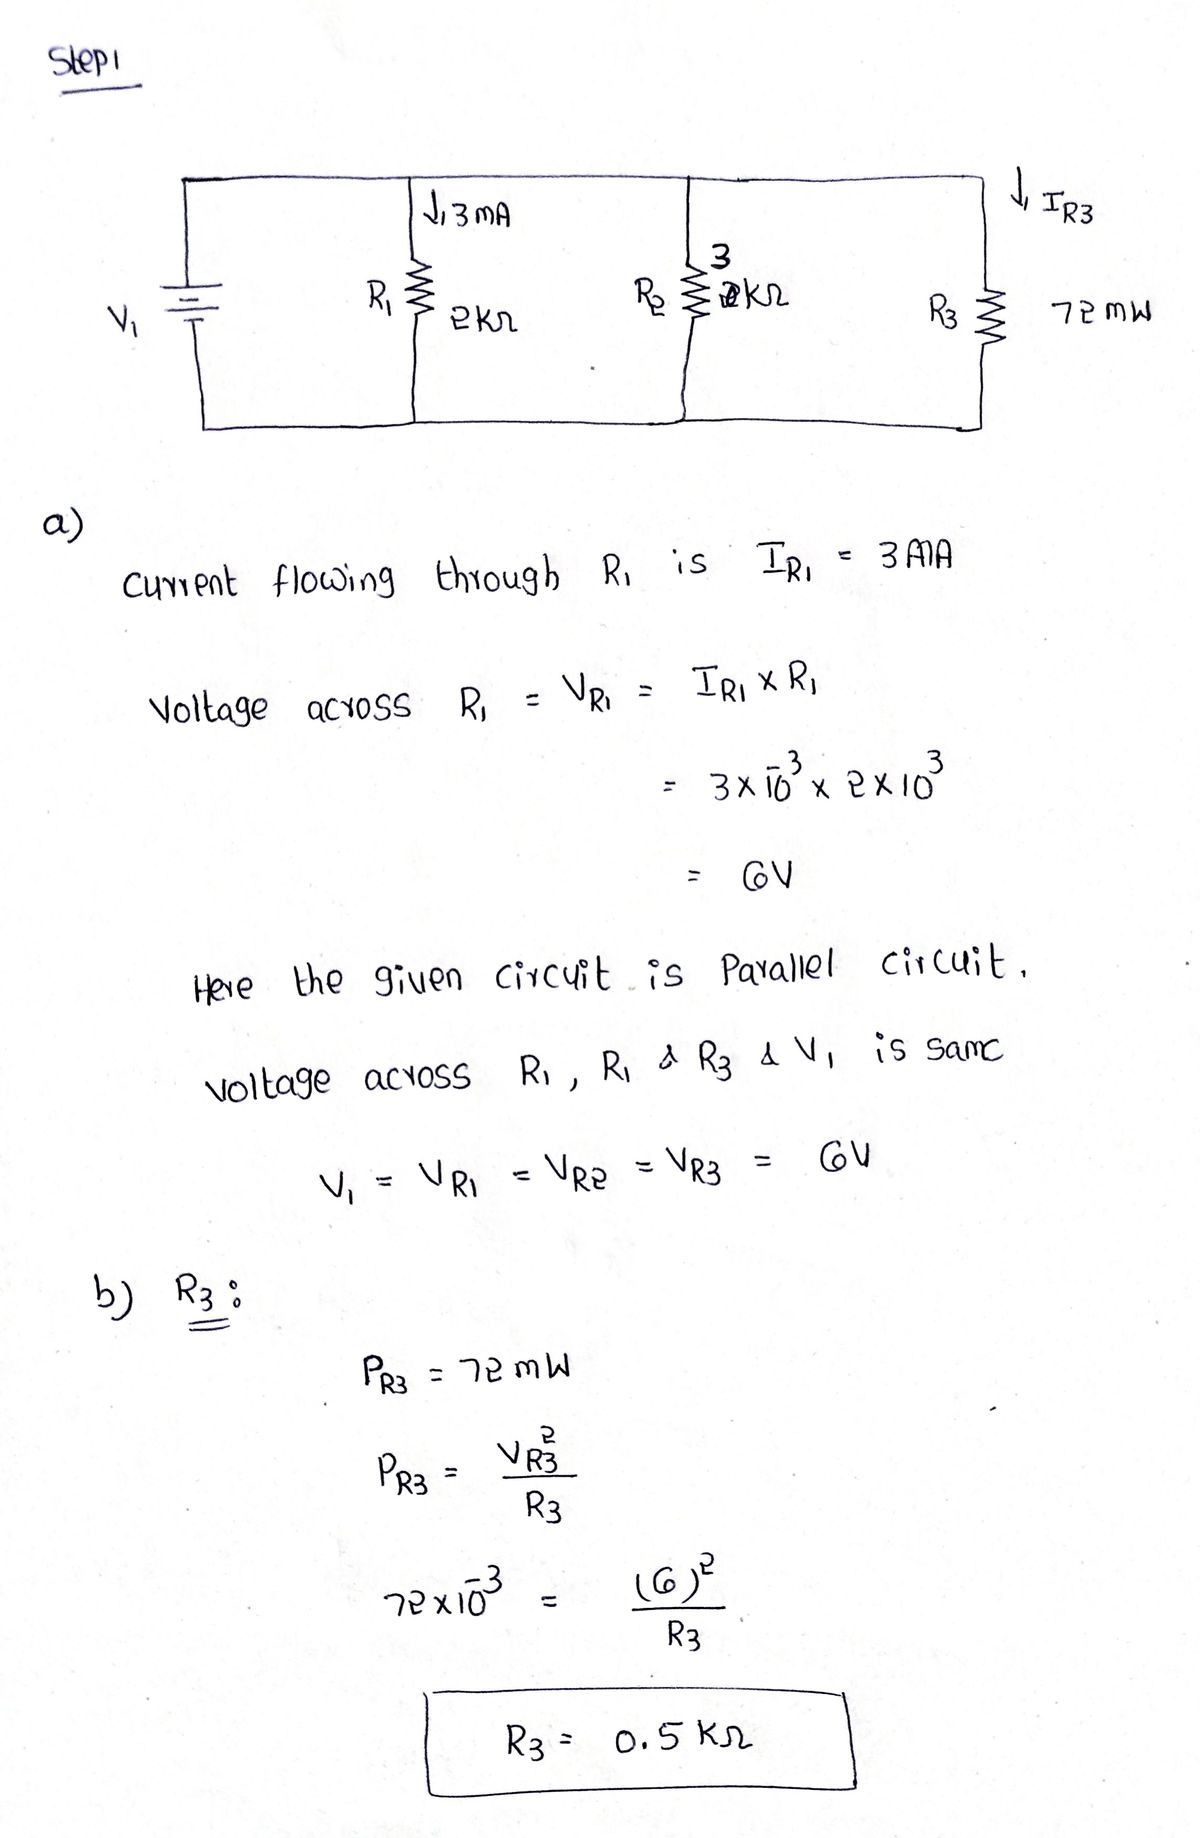 Step1
↓, 3 mA
↓, IR3
R1
2KΩ
R2
3
KΩ
V1
R3
72 mW
a)
Current flowing through R1 is IR1 = 3 mA
Voltage across R1 = VR1 = IR1 x R1
= 3 x 10⁻³ x 2 x 10³
= 6V
Here the given circuit is Parallel circuit.
Voltage across R1, R1 & R3 & V1 is same
V1 = VR1 = VR2 = VR3 = 6V
b) R3 :
PR3 = 72 mW
PR3 = VR3² / R3
72 x 10⁻³ = (6)² / R3
R3 = 0.5 KΩ